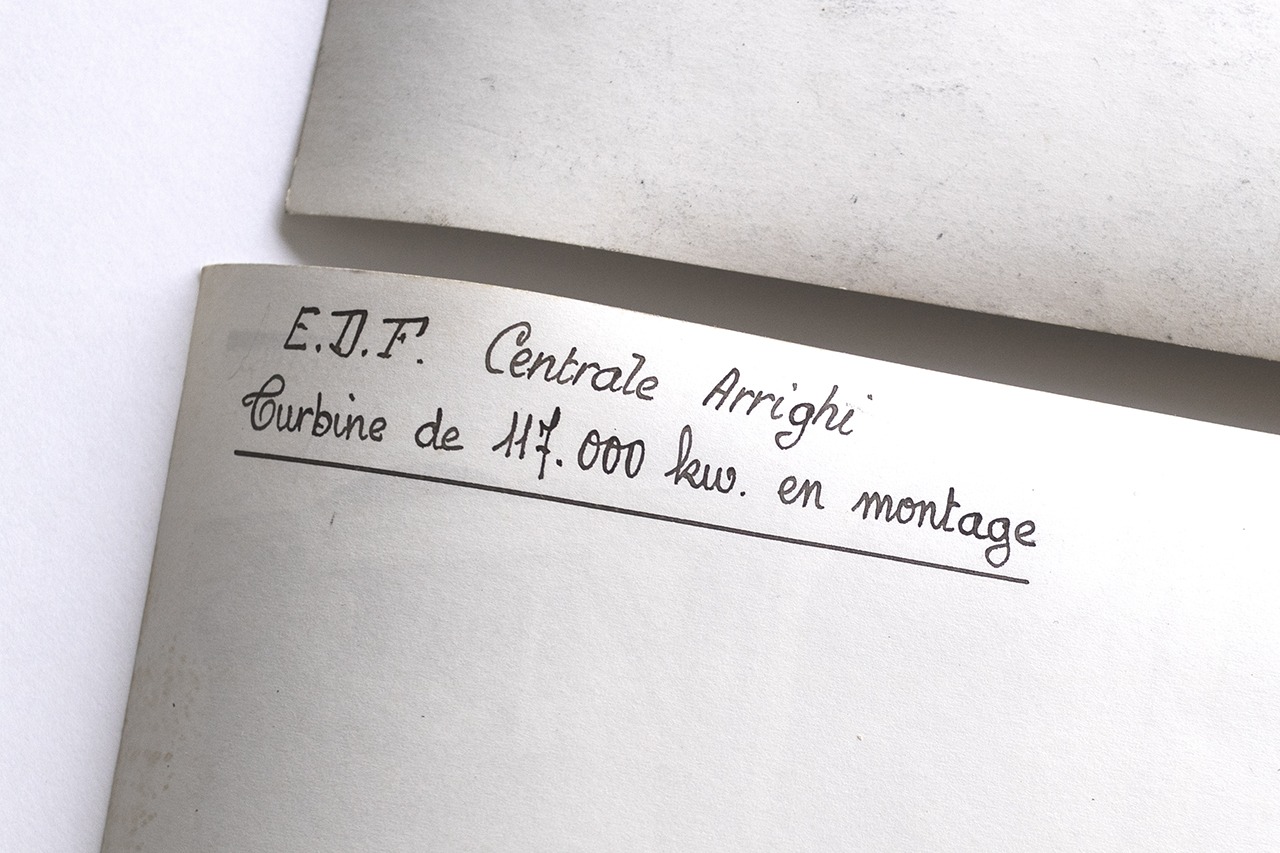 E.D.F. Centrale Arrighi
Turbine de 117.000 kw. en montage